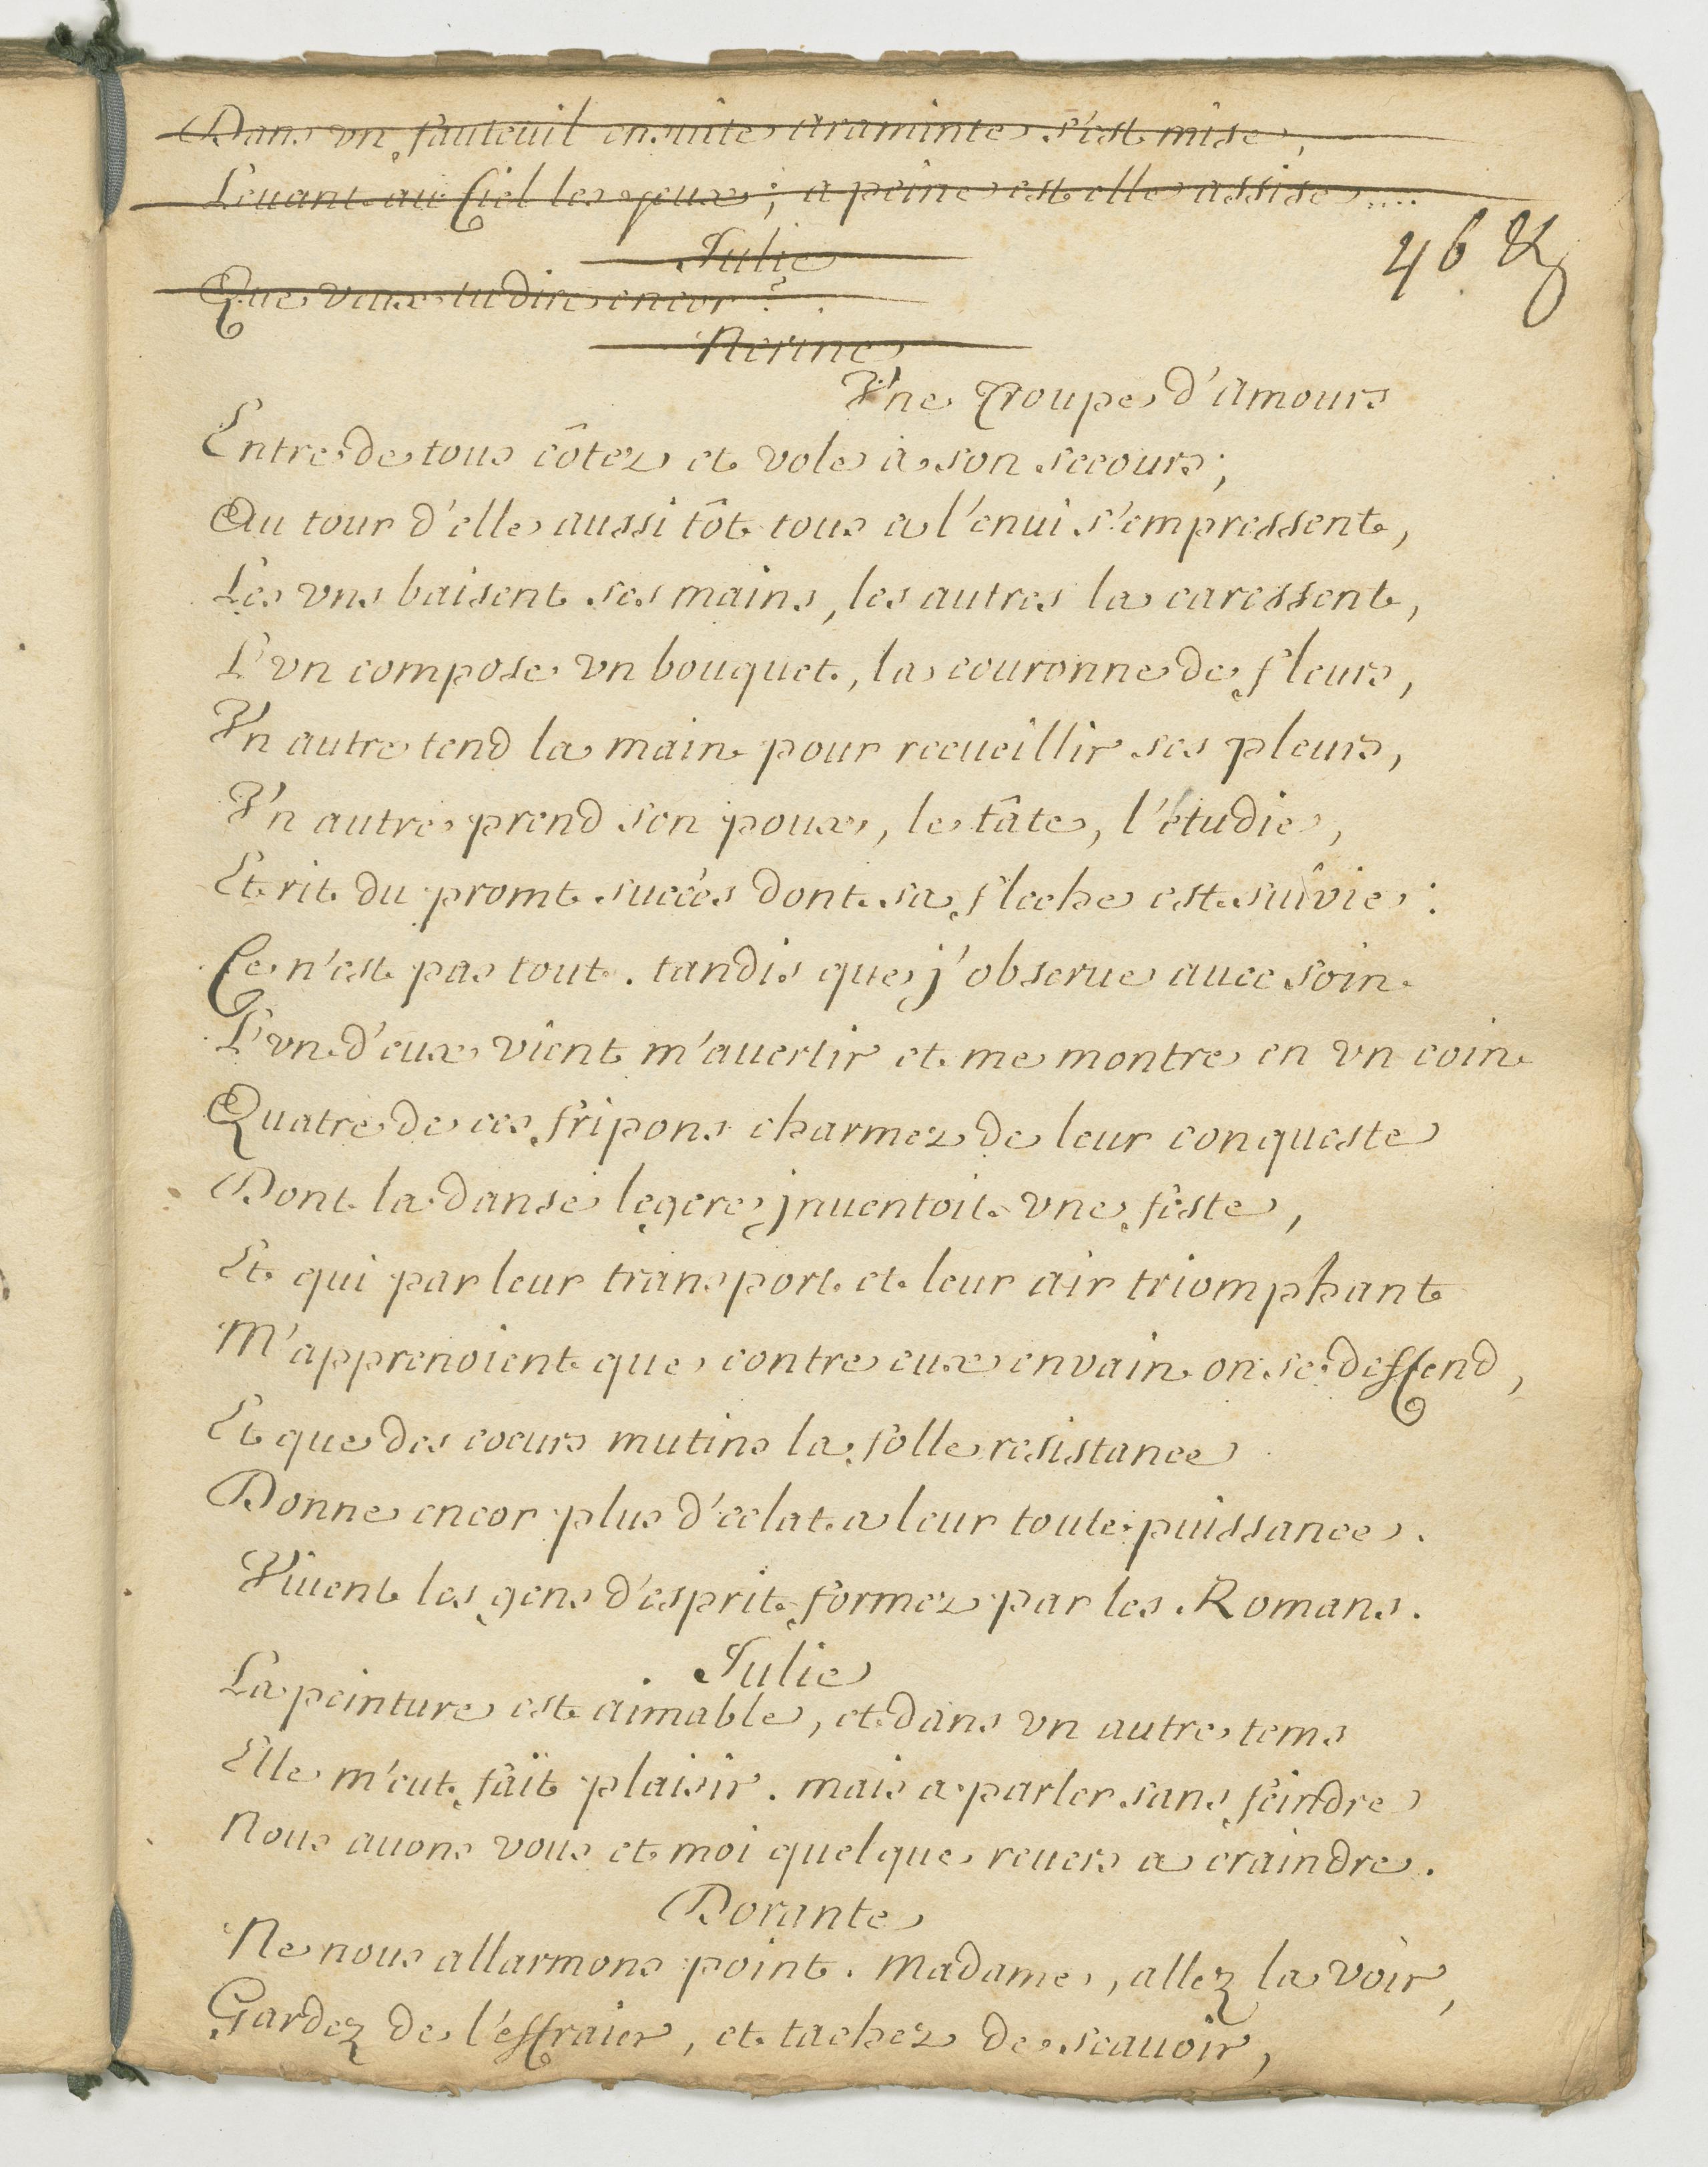 Dans vn fauteuil ensuite Araminte s'est mise,
Leuant au Ciel les yeux; a peine est elle assise....
46
Julie
Que veux tu dire encor?
Nerine
Vne Troupe d'Amours
Entre de tous côtez et vole à son secours;
Au tour d'elle aussi tôt tous a l'enui s'empressent,
Les vns baisent ses mains, les autres la caressent,
L'vn compose vn bouquet, la couronne de fleurs,
Vn autre tend la main pour recueillir ses pleurs,
Vn autre prend son poux, le tâte, l'étudie,
Et rit du promt succès dont sa fleche est suivie:
Ce n'est pas tout. tandis que j'obserue auec soin
L'vn d'eux vient m'auertir et me montre en vn coin
Quatre de ces fripons charmez de leur conqueste
Dont la danse legere jnuentoit vne feste,
Et qui par leur transport et leur air triomphant
M'apprenoient que contre eux envain on se deffend,
Et que des coeurs mutins la folle resistance
Donne encor plus d'eclat a leur toute puissance.
Viuent les gens d'esprit formez par les Romans.
Julie
La peinture est aimable, et dans vn autre tems
Elle m'eut fait plaisir. mais a parler sans feindre
Nous auons vous et moi quelque reuers a craindre.
Dorante
Ne nous allarmons point. Madame, allez la voir,
Gardez de l'effraier, et tachez de scauoir,